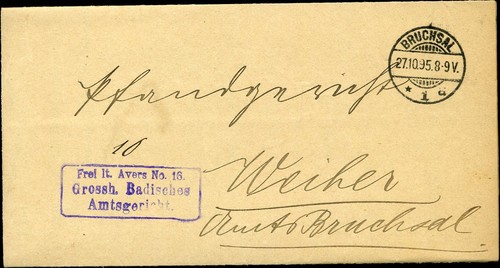 BRUCHSAL
27.10.95.8-9V.
* 1 d
Pfandgericht
16
Frei lt. Avers No. 16.
Grossh. Badisches
Amtsgericht.
Weiher
Amts Bruchsal